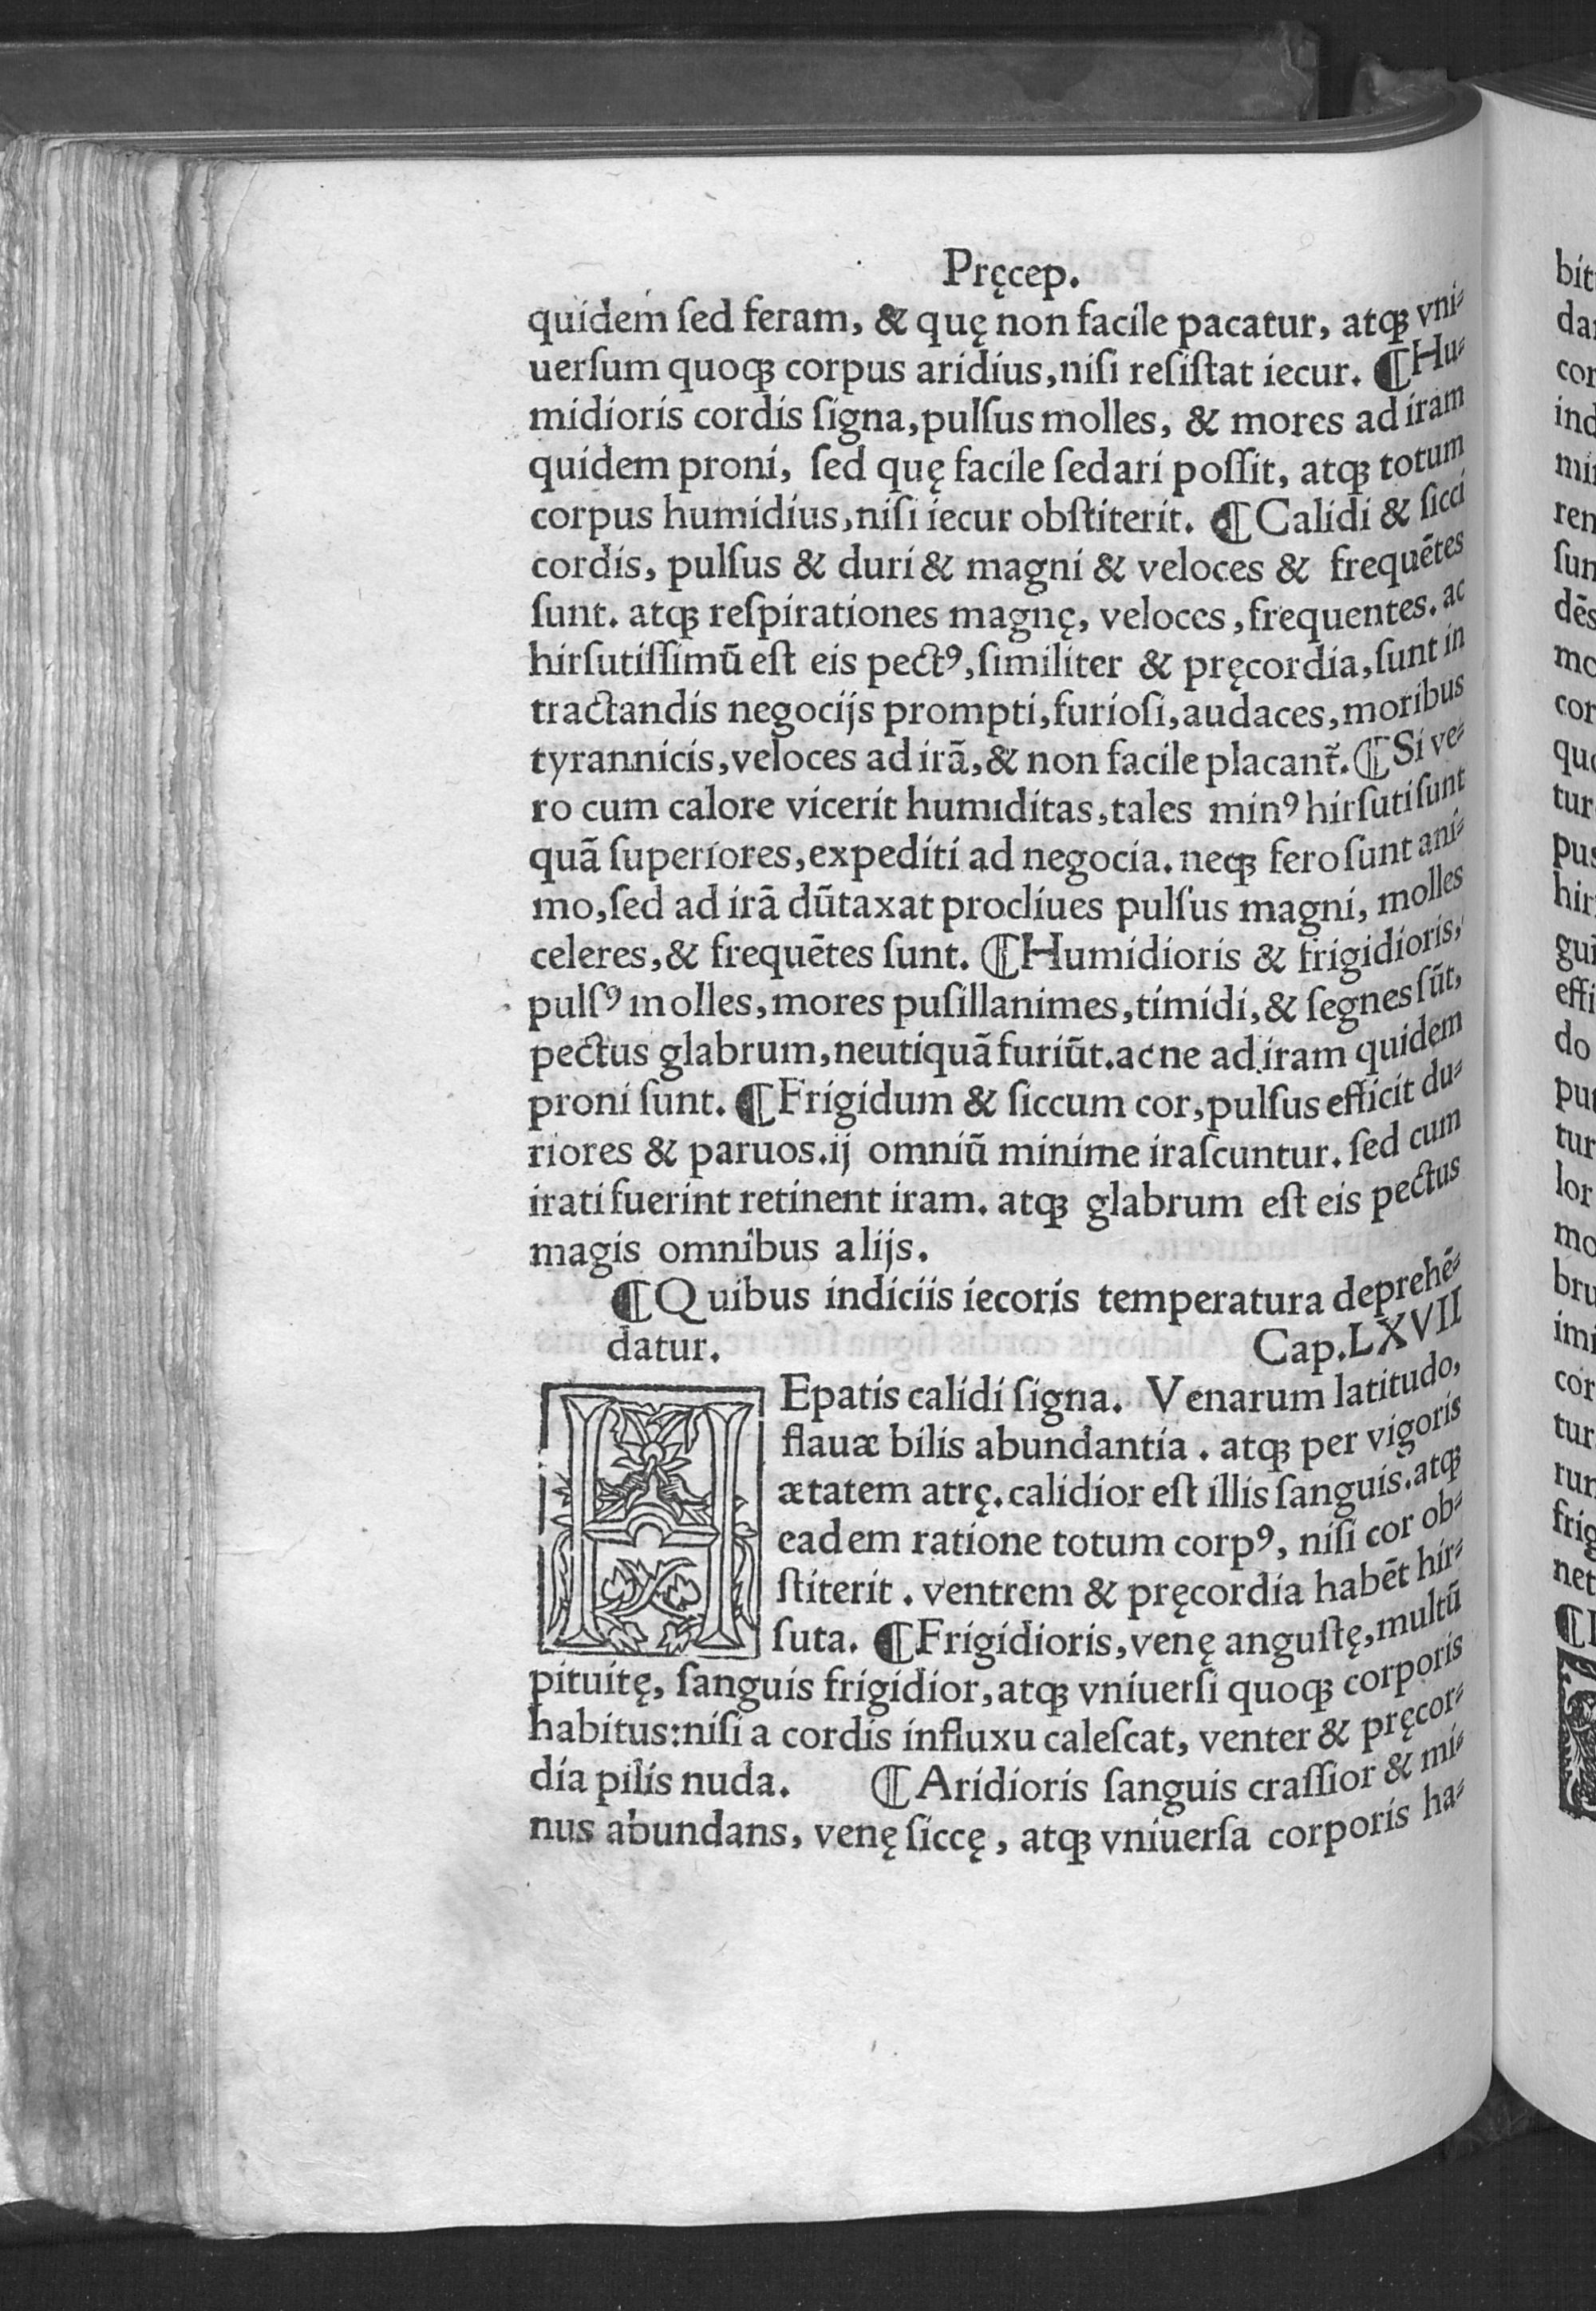 Pręcep.
quidem ſed feram, & quę non facile pacatur, atqꝫ vni⸗
uerſum quoqꝫ corpus aridius,niſi reſiſtat iecur. ¶Hu⸗
midioris cordis ſigna,pulſus molles, & mores ad iram
quidem proni, ſed quę facile ſedari poſſit, atqꝫ totum
corpus humidius,niſi iecur obſtiterit. ¶Calidi & ſicci
cordis, pulſus & duri & magni & veloces & frequētes
ſunt. atqꝫ reſpirationes magnę, veloces ,frequentes. ac
hirſutiſſimū eſt eis pectꝰ,ſimiliter & pręcordia,ſunt in
tractandis negocijs prompti,furioſi,audaces,moribus
tyrannicis,veloces ad irā,& non facile placant᷑. ¶Si ve⸗
ro cum calore vicerit humiditas,tales minꝰ hirſuti ſunt
quā ſuperiores,expediti ad negocia. neqꝫ fero ſunt ani⸗
mo,ſed ad irā dūtaxat procliues pulſus magni, molles
celeres,& frequētes ſunt. ¶Humidioris & frigidioris,
pulſꝰ molles,mores puſillanimes,timidi,& ſegnes ſūt,
pectus glabrum,neutiquā furiūt.ac ne ad iram quidem
proni ſunt. ¶Frigidum & ſiccum cor,pulſus efficit du⸗
riores & paruos.ij omniū minime iraſcuntur. ſed cum
irati fuerint retinent iram. atqꝫ glabrum eſt eis pectus
magis omnibus alijs.
¶Quibus indiciis iecoris temperatura deprehē⸗
datur. Cap.LXVII
HEpatis calidi ſigna. Venarum latitudo,
flauæ bilis abundantia . atqꝫ per vigoris
ætatem atrę.calidior eſt illis ſanguis.atqꝫ
eadem ratione totum corpꝰ, niſi cor ob⸗
ſtiterit . ventrem & pręcordia habēt hir⸗
ſuta. ¶Frigidioris,venę anguſtę,multū
pituitę, ſanguis frigidior,atqꝫ vniuerſi quoqꝫ corporis
habitus:niſi a cordis influxu caleſcat, venter & pręcor⸗
dia pilis nuda. ¶Aridioris ſanguis craſſior & mi⸗
nus abundans, venę ſiccę , atqꝫ vniuerſa corporis ha⸗